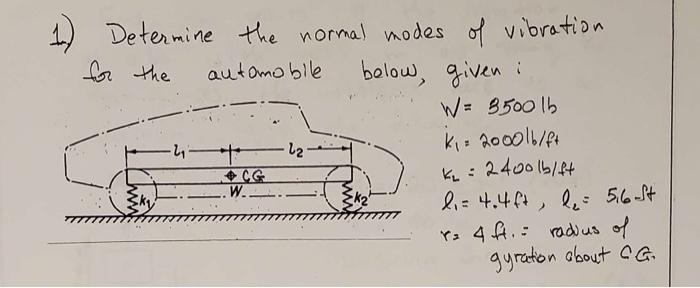 1) Determine the normal modes of vibration
for the automobile below, given :
W = 3500 lb
k₁ = 2000 lb/ft
k₂ = 2400 lb/ft
l₁ = 4.4 ft , l₂ = 5.6 ft
r = 4 ft. = radius of
gyration about CG.
l₁ l₂
CG
W
k₁ k₂